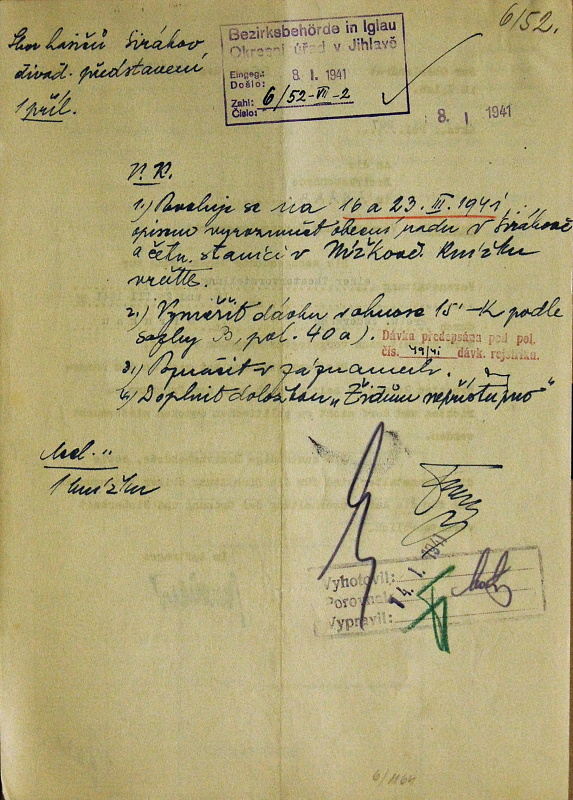 6/52.
Sbor hasičů Sirákov
divad. představení
1 příl.
Bezirksbehörde in Iglau
Okresní úřad v Jihlavě
Eingeg.:
Došlo: 8. I. 1941
Zahl:
Číslo: 6/52-VII-2
8. I 1941
V. K.
1.) Povoluje se na 16 a 23. III. 1941,
vyrozumět obecní radu v Sirákově
a četn. stanici v Nížkově. Knížku
vrátit.
2.) Vyměřit dávku v obnose 15 K podle
sazby B, pol. 40 a).
Dávka předepsána pod pol.
čís. 49/41 dávk. rejstříku.
3.) v záznamech.
4.) Doplnit doložkou „Židům nepřístupno"
1 knížka
14. I. 1941
Vyhotovil:
Porovnal:
Vypravil:
6/1164